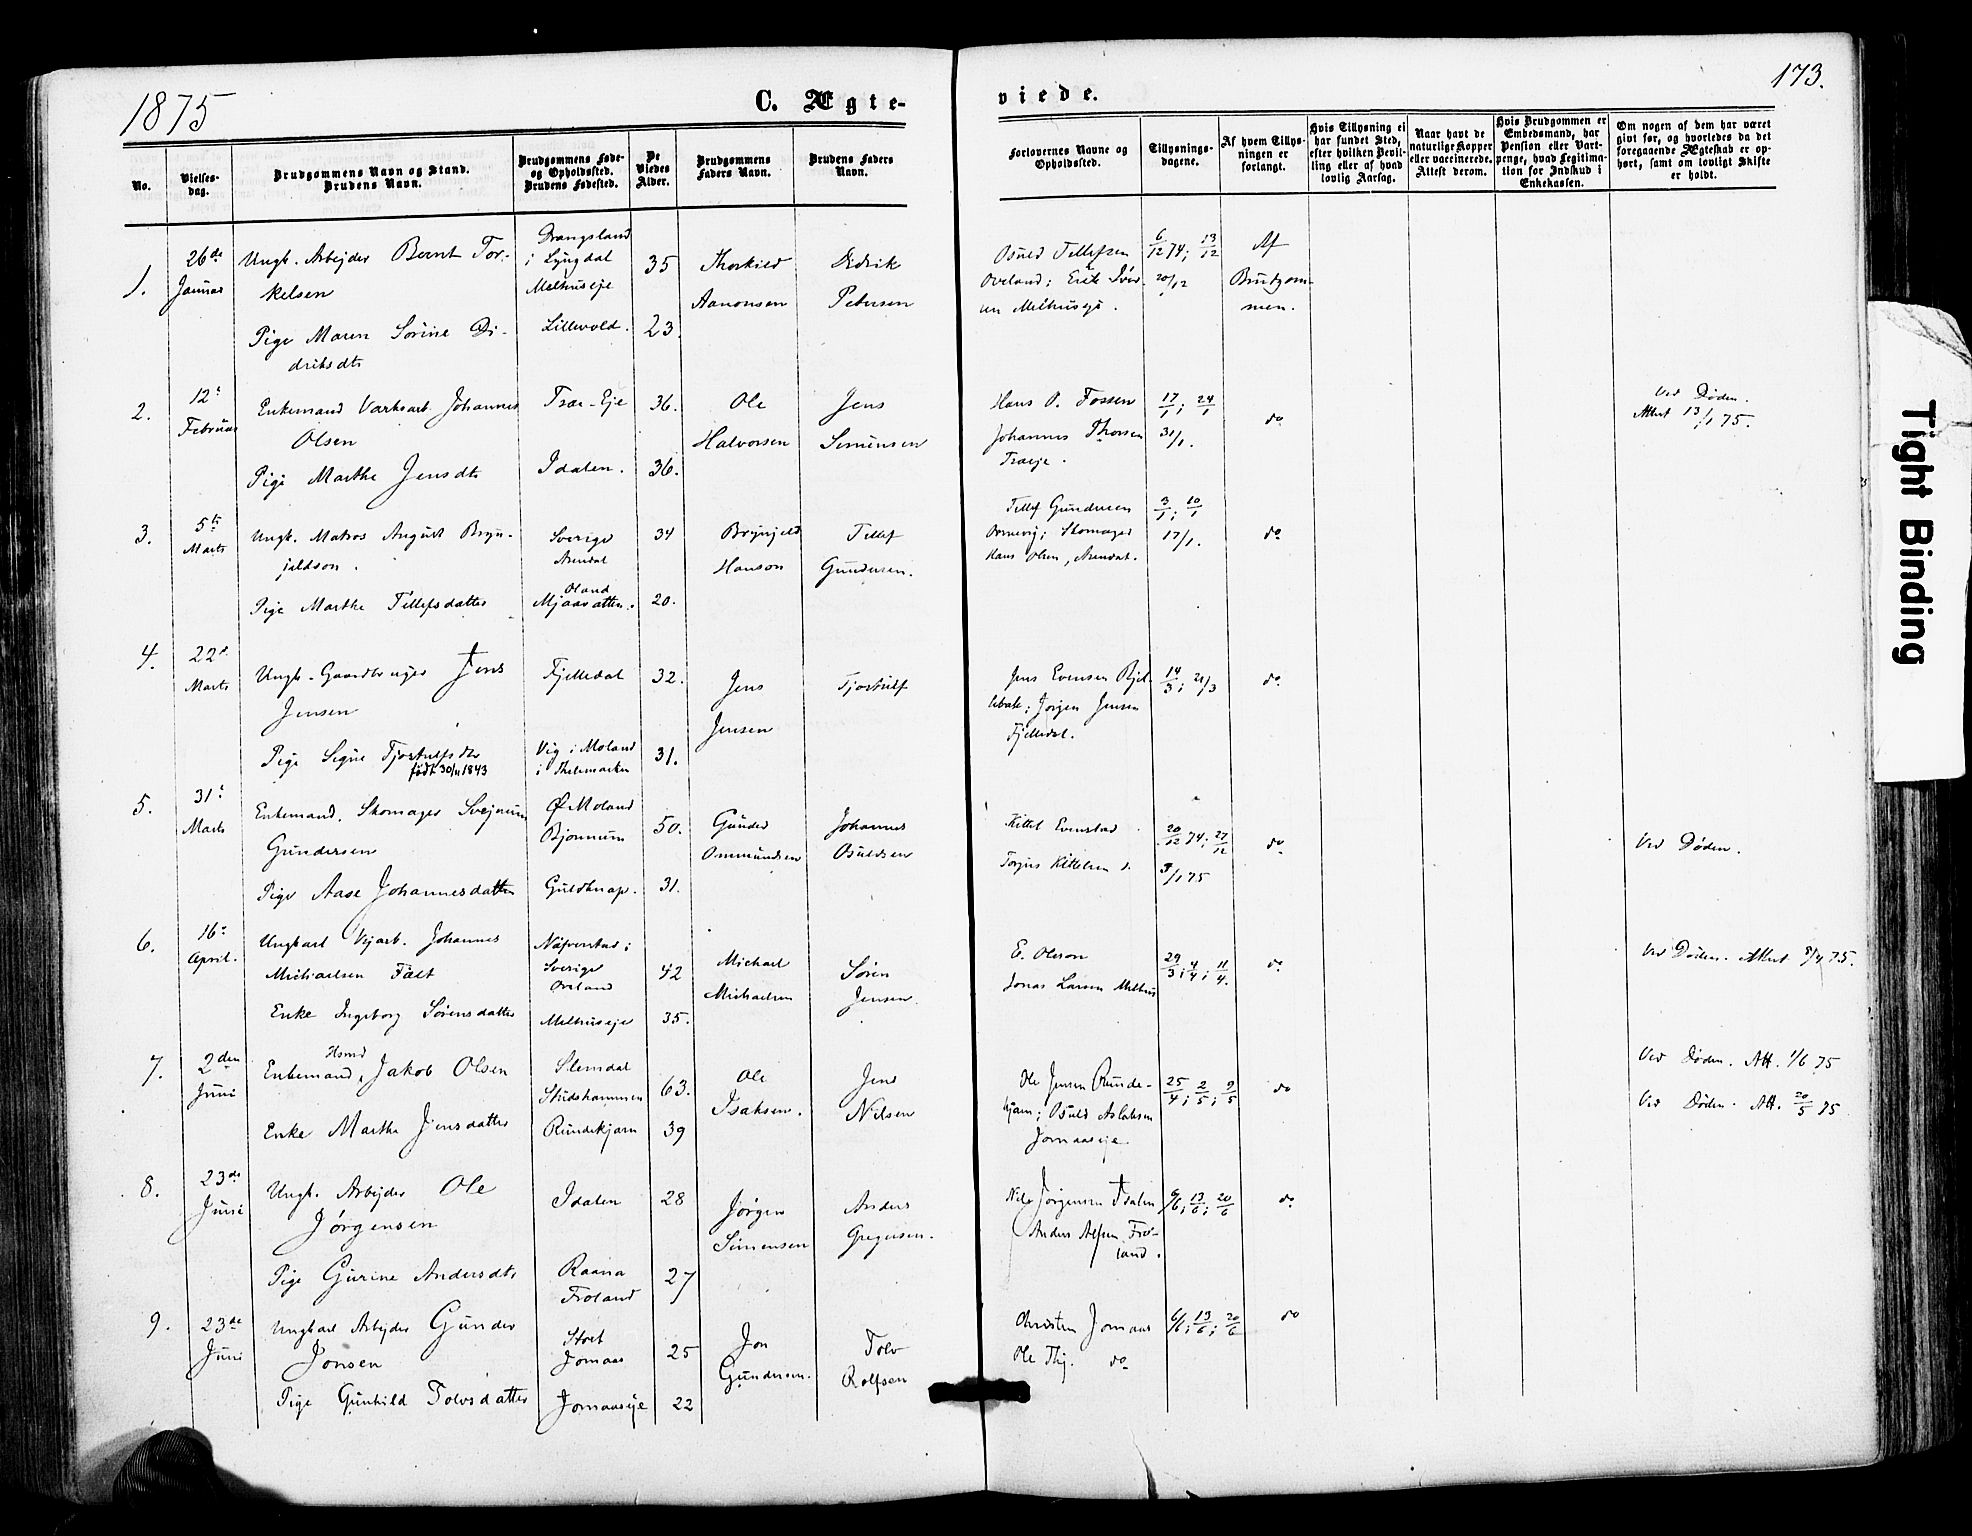 1875
C. Ægte-
viede.
173.
No.
Vielses-
dag.
Brudgommens Navn og Stand.
Brudens Navn.
Brudgommens Føde-
og Opholdssted.
Brudens Fødested.
De
Viedes
Alder.
Brudgommens
Faders Navn.
Brudens Faders
Navn.
Forlovernes Navne og
Opholdssted.
Tillysnings-
dagene.
Af hvem Tillys-
ningen er
forlangt.
Hvis Tillysning ei
har fundet Sted,
efter hvilken Bevil-
ling eller af hvad
lovlig Aarsag.
Naar havt de
naturlige Kopper
eller vaccinerede.
Attest derom.
Hvis Brudgommen er
Embedsmand, har
Pension eller Vart-
penge, hvad Legitima-
tion for Indskud i
Enkekassen.
Om nogen af dem har været
givt før, og hvorledes da det
foregaaende Ægteskab er op-
hørt, samt om lovligt Skifte
er holdt.
1.
26de
Januar
Ungk. Arbejder Bernt Tor-
kelsen
Pige Maren Sørine Di-
driksdtr
Drangsland
i Lyngdal
Melhuseje
Lillevold.
35
23.
Thorkild
Aanonsen
Didrik
Petersen
Osuld Tellefsen
Oveland; Erik Iver-
sen Melhuseje.
6/12 74; 13/12
20/12
Af
Brudgom-
men.
2.
12te
Februar
Enkemand Værksarb. Johannes
Olsen
Pige Marthe Jensdtr
Træe-Eje
Idalen.
36.
36.
Ole
Halvorsen
Jens
Simensen
Hans P. Fossen
Johannes Thorsen
Træeje.
17/1; 24/1
31/1.
do
Ved Døden.
Attest 13/1 75.
3.
5te
Marts
Ungk. Matros August Bryn-
jeldson.
Pige Marthe Tellefsdatter
Sverige
Arendal
Øland
Mjaavatten.
34
20.
Brynjeld
Hanson
Tellef
Gundersen.
Tellef Gundersen
; Skomager
Hans Olsen, Arendal.
3/1; 10/1
17/1.
do
4.
22de
Marts
Ungk. Gaardbruger Jens
Jensen
Pige Signe Tjostulfsdtr
født 30/11 1843
Fjelledal
Vig i Moland
i Thelemarken
32.
31.
Jens
Jensen
Tjostulf
Jens Evensen Bjel-
; Jørgen Jensen
Fjelledal.
14/3; 21/3
do
5.
31te
Marts
Enkemand, Skomager Svejnum
Gundersen
Pige Aase Johannesdatter
Ø. Moland
Bjønnum
Guldknap.
50.
31.
Gunder
Ommundsen
Johannes
Osuldsen
Kittel Evenstad
Torjus Kittelsen
20/12 74; 27/12
3/1 75
do
Ved Døden.
6.
16de
April.
Ungkarl Vejarb. Johannes
Michaelsen Falt
Enke Ingeborg Sørensdatter
Näfverstad i
Sverige
Oveland
Melhuseje
42
35.
Michael
Michaelsen
Søren
Jensen.
E. Oleson
Jonas Larsen Melhus
29/3; 4/4; 11/4.
do
Ved Døden. Attest 8/4 75.
7.
2den
Juni
Husmd
Enkemand, Jakob Olsen
Enke Marthe Jensdatter
Slemdal
Stidshammen
Rundekjærn
63.
39
Ole
Isaksen.
Jens
Nilsen
Ole Jensen Runde-
kjærn; Osuld Aslaksen
Jomaaseje.
25/4; 2/5; 9/5
do
Ved Døden. Att. 1/6 75
Ved Døden. Att. 20/5 75
8.
23de
Juni
Ungk. Arbejder Ole
Jørgensen
Pige Gurine Andersdtr
Idalen
Raana
Froland
28
27
Jørgen
Simensen
Anders
Gregersen.
Nils Jørgensen Idalen
Anders Alfsen Fro-
land.
6/6; 13/6; 20/6
do
9.
23de
Juni
Ungkarl Arbejder Gunder
Jonsen
Pige Gunhild Tolvsdatter
Stort
Jomaas
Jomaaseje
25
22
Jon
Gundersen.
Tolv
Rolfsen
Christen Jomaas
Ole Thj. do
6/6; 13/6; 20/6
do
Tight Binding